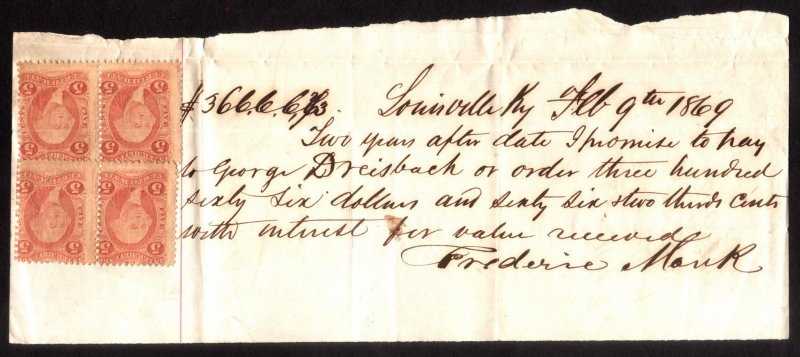 $366.66 2/3. Louisville Ky Feb 9th 1869
Two years after date I promise to pay
to George Dreisback or order three hundred
sixty six dollars and sixty six & two thirds cents
with interest for value received
Frederic Mank
5 5
5 5
FIVE
5 5
5 5